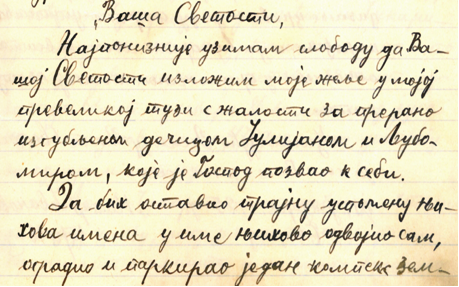 „Ваша Светости,
Најпонизније узимам слободу да Ва-
шој Светости изложим моје жеље у мојој
превеликој тузи с жалости за прерано
изгубљеном дечицом Јулијаном и Љубо-
миром, које је Господ позвао к себи.
Да бих оставио трајну успомену њи-
хова имена у име њихово одвојио сам,
оградио и паркирао један комплекс зем-